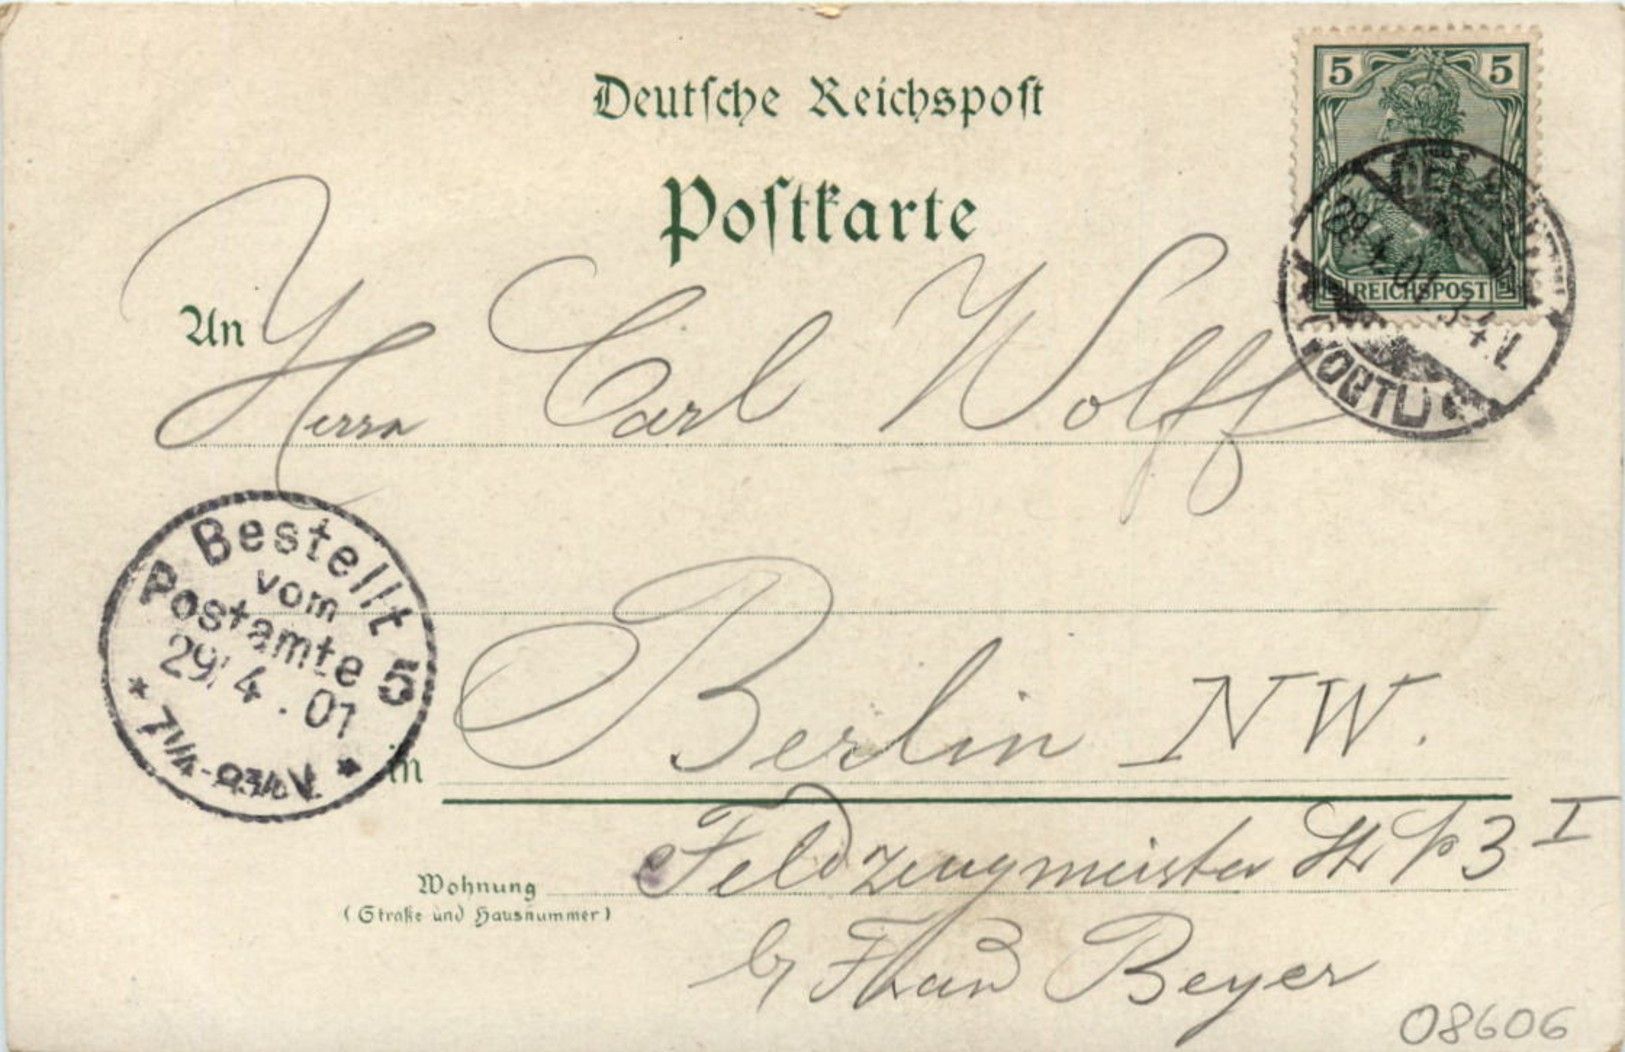 Deutsche Reichspost
Postkarte
5 5
REICHSPOST
28.4.01 3-4 N.
An Herrn Carl Wolff
Bestellt
vom
Postamte 5
29. 4. 01
7 1/4 - 9 3/4 V.
in Berlin NW.
Wohnung Feldzeugmeister Str. 3 I
(Straße und Hausnummer)
b/ Frau Beyer
08606